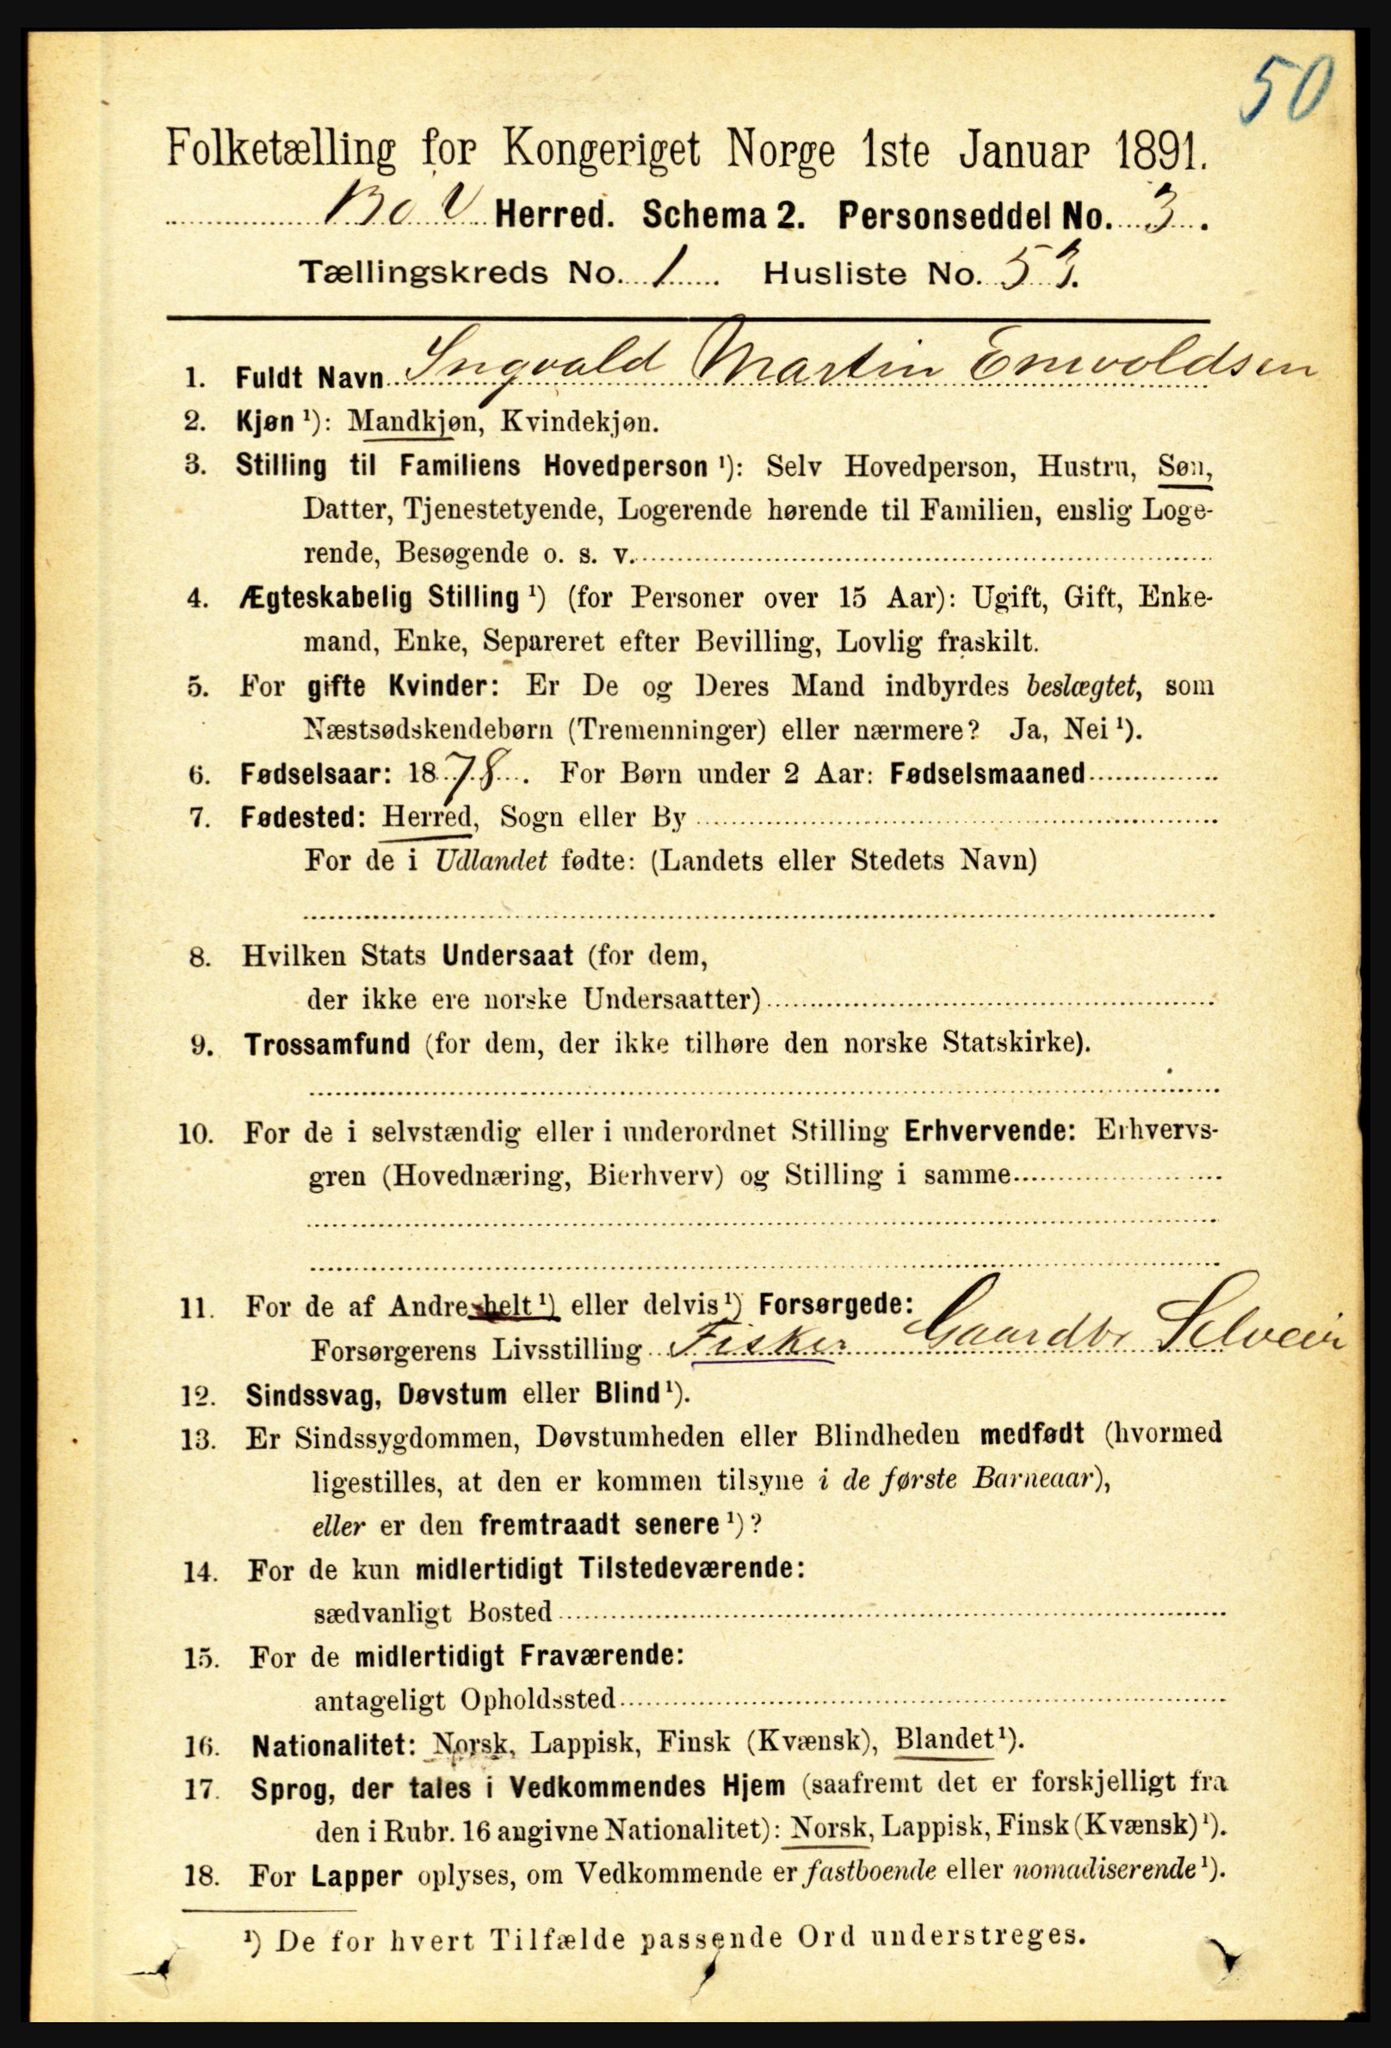 50
Folketælling for Kongeriget Norge 1ste Januar 1891.
Bø Herred. Schema 2. Personseddel No. 3.
Tællingskreds No. 1 Husliste No. 53.
1. Fuldt Navn Ingvald Martin Envoldsen
2. Kjøn ¹): Mandkjøn, Kvindekjøn.
3. Stilling til Familiens Hovedperson ¹): Selv Hovedperson, Hustru, Søn,
Datter, Tjenestetyende, Logerende hørende til Familien, enslig Loge-
rende, Besøgende o. s. v.
4. Ægteskabelig Stilling ¹) (for Personer over 15 Aar): Ugift, Gift, Enke-
mand, Enke, Separeret efter Bevilling, Lovlig fraskilt.
5. For gifte Kvinder: Er De og Deres Mand indbyrdes beslægtet, som
Næstsødskendebørn (Tremenninger) eller nærmere? Ja, Nei ¹).
6. Fødselsaar: 1878. For Børn under 2 Aar: Fødselsmaaned
7. Fødested: Herred, Sogn eller By
For de i Udlandet fødte: (Landets eller Stedets Navn)
8. Hvilken Stats Undersaat (for dem,
der ikke ere norske Undersaatter)
9. Trossamfund (for dem, der ikke tilhøre den norske Statskirke).
10. For de i selvstændig eller i underordnet Stilling Erhvervende: Erhvervs-
gren (Hovednæring, Bierhverv) og Stilling i samme
11. For de af Andre helt ¹) eller delvis ¹) Forsørgede:
Forsørgerens Livsstilling Fisker Gaardbr Selveier
12. Sindssvag, Døvstum eller Blind ¹).
13. Er Sindssygdommen, Døvstumheden eller Blindheden medfødt (hvormed
ligestilles, at den er kommen tilsyne i de første Barneaar),
eller er den fremtraadt senere ¹)?
14. For de kun midlertidigt Tilstedeværende:
sædvanligt Bosted
15. For de midlertidigt Fraværende:
antageligt Opholdssted
16. Nationalitet: Norsk, Lappisk, Finsk (Kvænsk), Blandet ¹).
17. Sprog, der tales i Vedkommendes Hjem (saafremt det er forskjelligt fra
den i Rubr. 16 angivne Nationalitet): Norsk, Lappisk, Finsk (Kvænsk) ¹).
18. For Lapper oplyses, om Vedkommende er fastboende eller nomadiserende ¹).
¹) De for hvert Tilfælde passende Ord understreges.